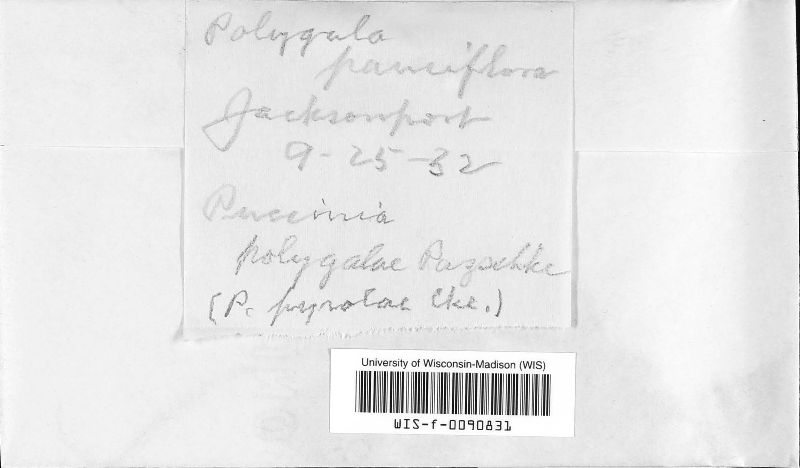 Polygala
pauciflora
Jacksonport
9-25-32
Puccinia
polygalae Pazschke
(P. pyrolae Cke.)
University of Wisconsin-Madison (WIS)
WIS-f-0090831